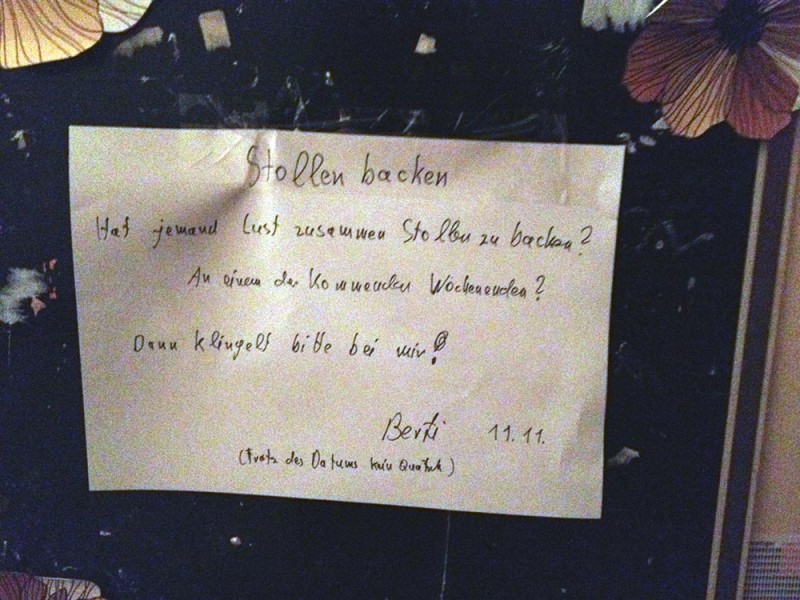 Stollen backen
Hat jemand Lust zusammen Stollen zu backen?
An einem der kommenden Wochenenden?
Dann klingelt bitte bei mir!
Berti 11.11.
(Trotz des Datums kein Quatsch)